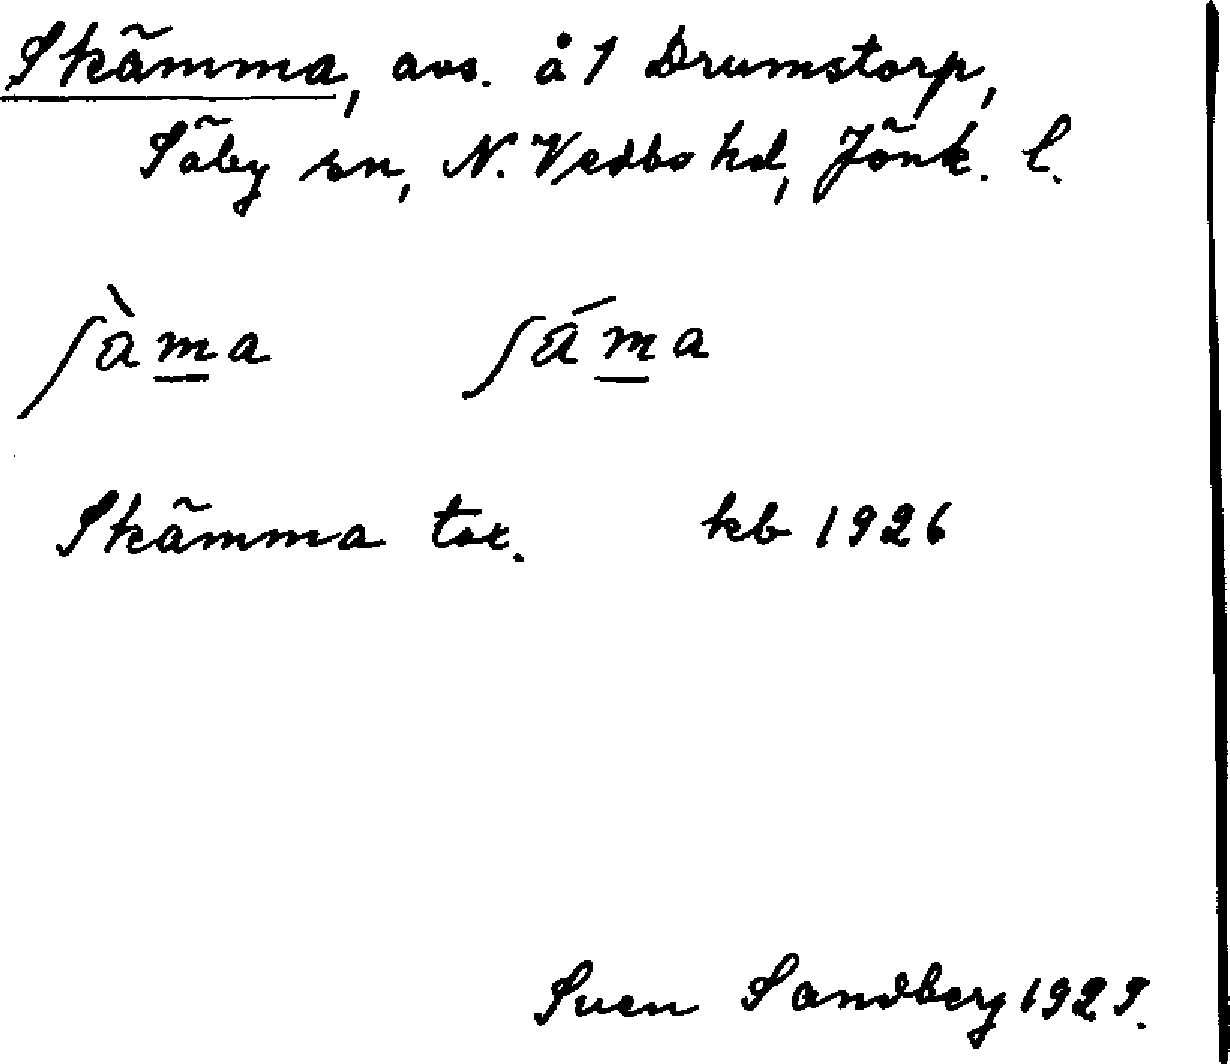 Skämma, avs. å 1 Drumstorp,
Säby sn, N. Vedbo hd, Jönk. l.
ʃàm̲a ʃám̲a
Skämma tor. kb 1926
Sven Sandberg 1929.